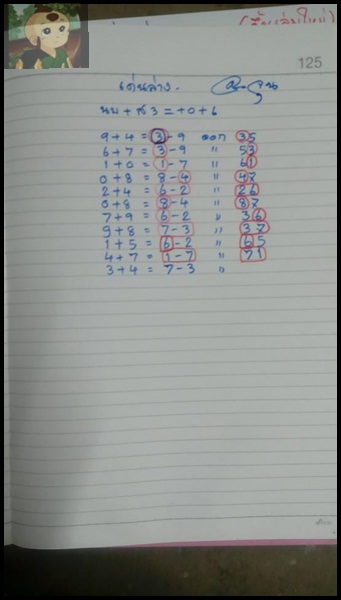 (ขึ้นเล่มใหม่)
125
เด่นล่าง.
บน + ส 3 = +0+6
9+4 = 3-9 ออก 35
6+7 = 3-9 " 53
1+0 = 1-7 " 61
0+8 = 8-4 " 47
2+4 = 6-2 " 26
0+8 = 8-4 " 87
7+9 = 6-2 " 36
9+8 = 7-3 " 37
1+5 = 6-2 " 65
4+7 = 1-7 " 71
3+4 = 7-3 "